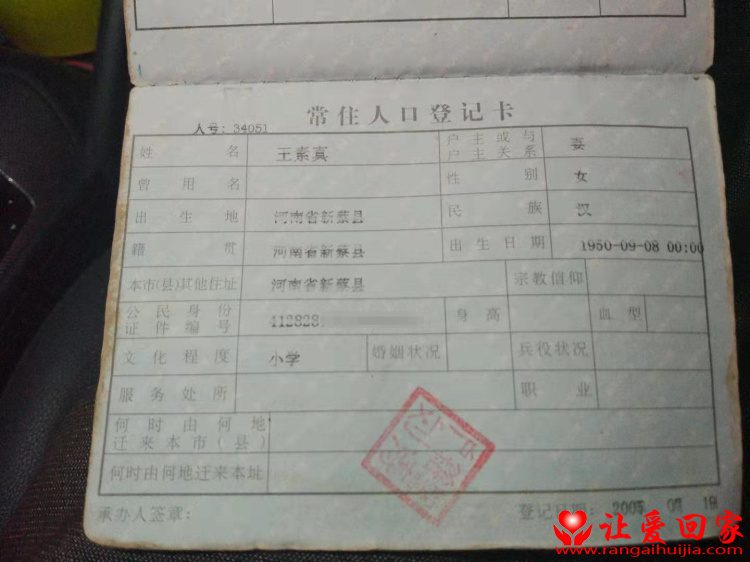 常住人口登记卡
人号: 34051
姓名 王素真 户主或与户主关系 妻
曾用名 性别 女
出生地 河南省新蔡县 民族 汉
籍贯 河南省新蔡县 出生日期 1950-09-08 00:00
本市(县)其他住址 河南省新蔡县 宗教信仰
公民身份证件编号 412828 身高 血型
文化程度 小学 婚姻状况 兵役状况
服务处所 职业
何时由何地迁来本市(县)
何时由何地迁来本址
承办人签章: 登记日期: 2005 07 19
让爱回家
www.rangaihuijia.com